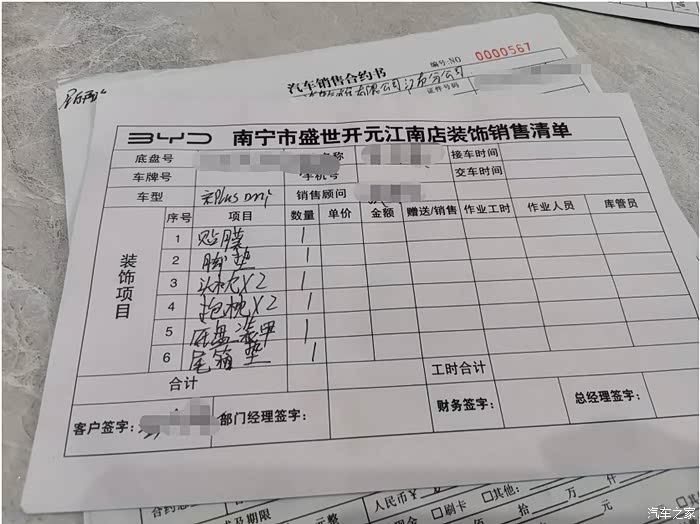 汽车销售合约书
编号:NO 0000567
有限公司江南分公司
证件号码
BYD 南宁市盛世开元江南店装饰销售清单
底盘号 名称 接车时间
车牌号 手机号 交车时间
车型 宋Plus dmi 销售顾问
装饰项目
序号 项目 数量 单价 金额 赠送/销售 作业工时 作业人员 库管员
1 贴膜 1
2 脚垫 1
3 头枕X2 1
4 抱枕X2 1
5 底盘装甲 1
6 尾箱垫 1
合计 工时合计
客户签字: 部门经理签字: 财务签字: 总经理签字:
人民币 万
刷卡 其他:
及期限
汽车之家